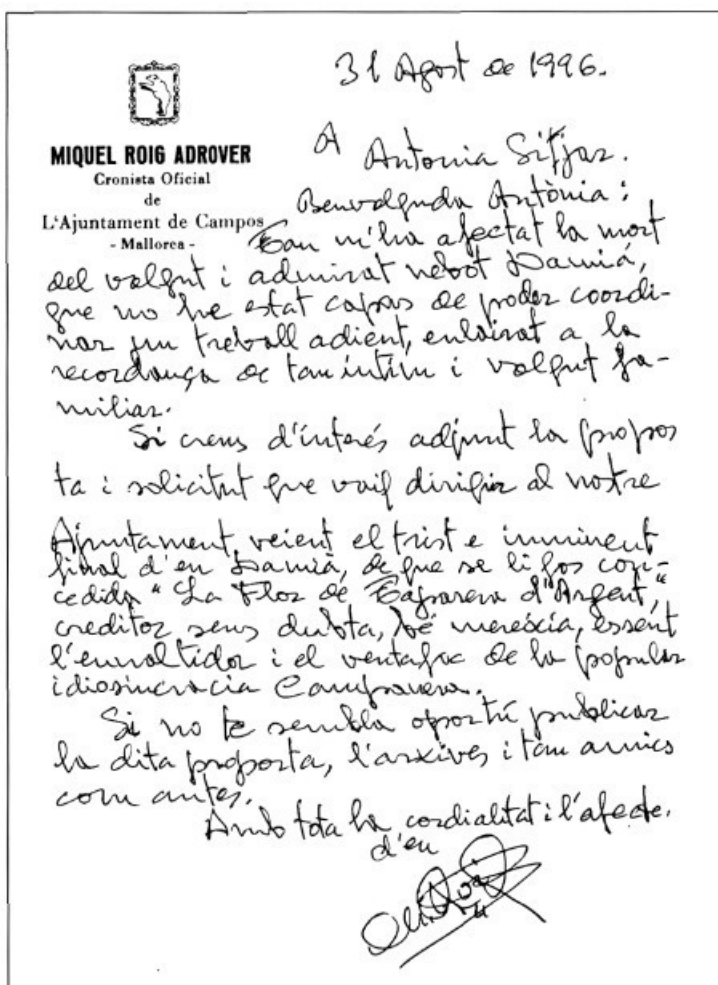 31 Agost de 1996.
MIQUEL ROIG ADROVER
Cronista Oficial
de
L'Ajuntament de Campos
- Mallorca -
A Antonia Sitjar.
Benvolguda Antònia:
Tan m'ha afectat la mort
del volgut i admirat nebot Damiá,
que no he estat capas de poder coordi-
nar un treball adient, enlairat a la
recordança de tan íntim i volgut fa-
miliar.
Si creus d'interés adjunt la propos
ta i solicitut que vaig dirigir al nostre
Ajuntament veient el trist e imminent
final d'en Damià, de que se li fos con-
cedida "La Flor de Taparera d'Argent,"
creditor sens dubta, bé mereixia, essent
l'enaltidor i el de la popular
idiosincracia Campanera.
Si no te sembla oportú publicar
la dita proposta, l'arxives i tan amics
com antes.
Amb tota la cordialitat i l'afecte.
d'en